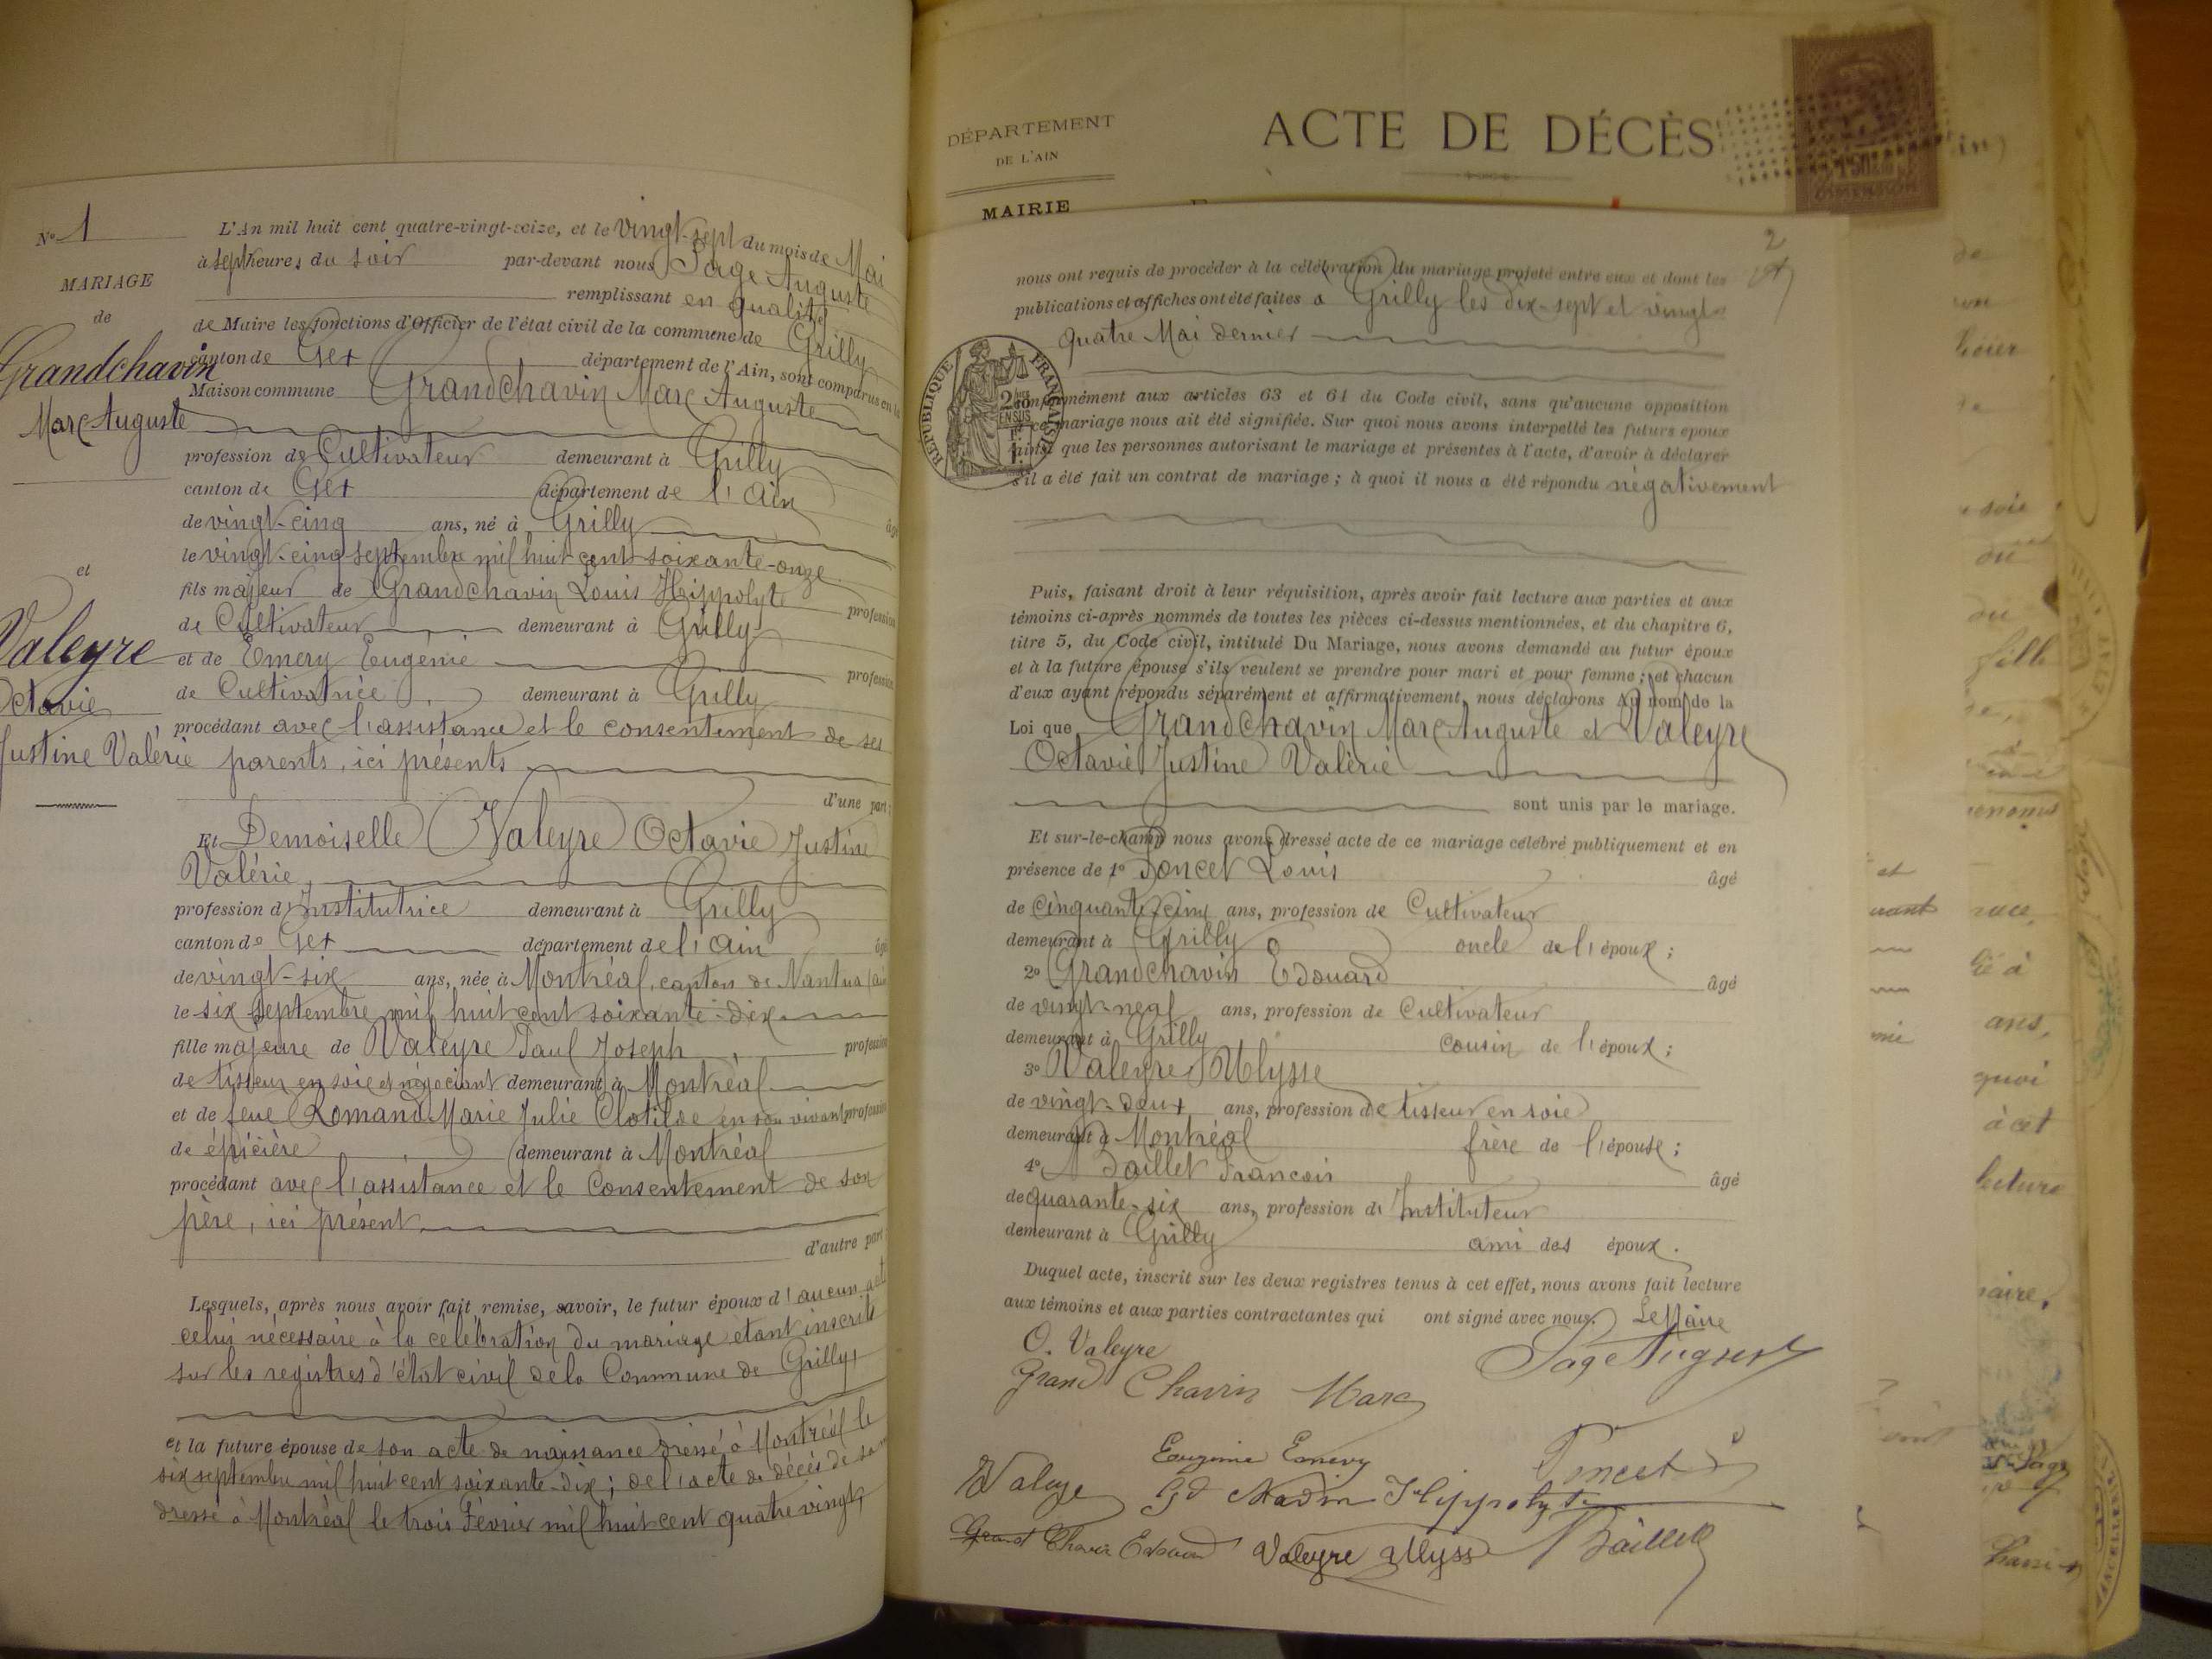 N° 1
MARIAGE
de
Grandchavin
Marc Auguste
et
Valeyre
Octavie
Justine Valérie
L'An mil huit cent quatre-vingt-seize, et le vingt-sept du mois de Mai
à sept heures du soir par-devant nous Page Auguste
remplissant en qualité
de Maire les fonctions d'Officier de l'état civil de la commune de Grilly
canton de Gex département de l'Ain, sont comparus en la
Maison commune Grandchavin Marc Auguste
profession de Cultivateur demeurant à Grilly
canton de Gex département de l'Ain âgé
de vingt-cinq ans, né à Grilly
le vingt-cinq septembre mil huit cent soixante-onze
fils majeur de Grandchavin Louis Hippolyte profession
de Cultivateur demeurant à Grilly
et de Emery Eugénie profession
de Cultivatrice demeurant à Grilly
procédant avec l'assistance et le consentement de ses
parents, ici présents
d'une part;
Et Demoiselle Valeyre Octavie Justine
Valérie
profession d'Institutrice demeurant à Grilly
canton de Gex département de l'Ain âgée
de vingt-six ans, née à Montréal, canton de Nantua (Ain
le six septembre mil huit cent soixante-dix
fille majeure de Valeyre Paul Joseph profession
de tisseur en soie et négociant demeurant à Montréal
et de feue Romand Marie Julie Clotilde en son vivant profession
de épicière demeurant à Montréal
procédant avec l'assistance et le Consentement de son
père, ici présent
d'autre part;
Lesquels, après nous avoir fait remise, savoir, le futur époux d'aucun acte
celui nécessaire à la célébration du mariage étant inscrit
sur les registres d'état civil de la Commune de Grilly,
et la future épouse de son acte de naissance dressé à Montréal le
six septembre mil huit cent soixante-dix; de l'acte de décès de sa
dressé à Montréal le trois Février mil huit cent quatre vingt
DÉPARTEMENT
DE L'AIN
MAIRIE
ACTE DE DÉCÈS
2
nous ont requis de procéder à la célébration du mariage projeté entre eux et dont les
publications et affiches ont été faites à Grilly les dix-sept et vingt-
quatre Mai dernier
RÉPUBLIQUE FRANÇAISE
conformément aux articles 63 et 64 du Code civil, sans qu'aucune opposition
à ce mariage nous ait été signifiée. Sur quoi nous avons interpellé les futurs époux
ainsi que les personnes autorisant le mariage et présentes à l'acte, d'avoir à déclarer
s'il a été fait un contrat de mariage; à quoi il nous a été répondu négativement
Puis, faisant droit à leur réquisition, après avoir fait lecture aux parties et aux
témoins ci-après nommés de toutes les pièces ci-dessus mentionnées, et du chapitre 6,
titre 5, du Code civil, intitulé Du Mariage, nous avons demandé au futur époux
et à la future épouse s'ils veulent se prendre pour mari et pour femme; et chacun
d'eux ayant répondu séparément et affirmativement, nous déclarons au nom de la
Loi que Grandchavin Marc Auguste et Valeyre
Octavie Justine Valérie
sont unis par le mariage.
Et sur-le-champ nous avons dressé acte de ce mariage célébré publiquement et en
présence de 1° Poncet Louis âgé
de cinquante-cinq ans, profession de Cultivateur
demeurant à Grilly oncle de l'époux;
2° Grandchavin Edouard âgé
de vingt-neuf ans, profession de Cultivateur
demeurant à Grilly cousin de l'époux;
3° Valeyre Ulysse
de vingt-deux ans, profession de tisseur en soie
demeurant à Montréal frère de l'épouse;
4° Baillet François âgé
de quarante-six ans, profession d'Instituteur
demeurant à Grilly ami des époux.
Duquel acte, inscrit sur les deux registres tenus à cet effet, nous avons fait lecture
aux témoins et aux parties contractantes qui ont signé avec nous. Le Maire
O. Valeyre
Page Auguste
Grand Chavin Marc
Eugénie Emery
Poncet
Valeyre Gd Chavin Hippolyte
Grand Chavin Edouard Valeyre Ulysse Baillet